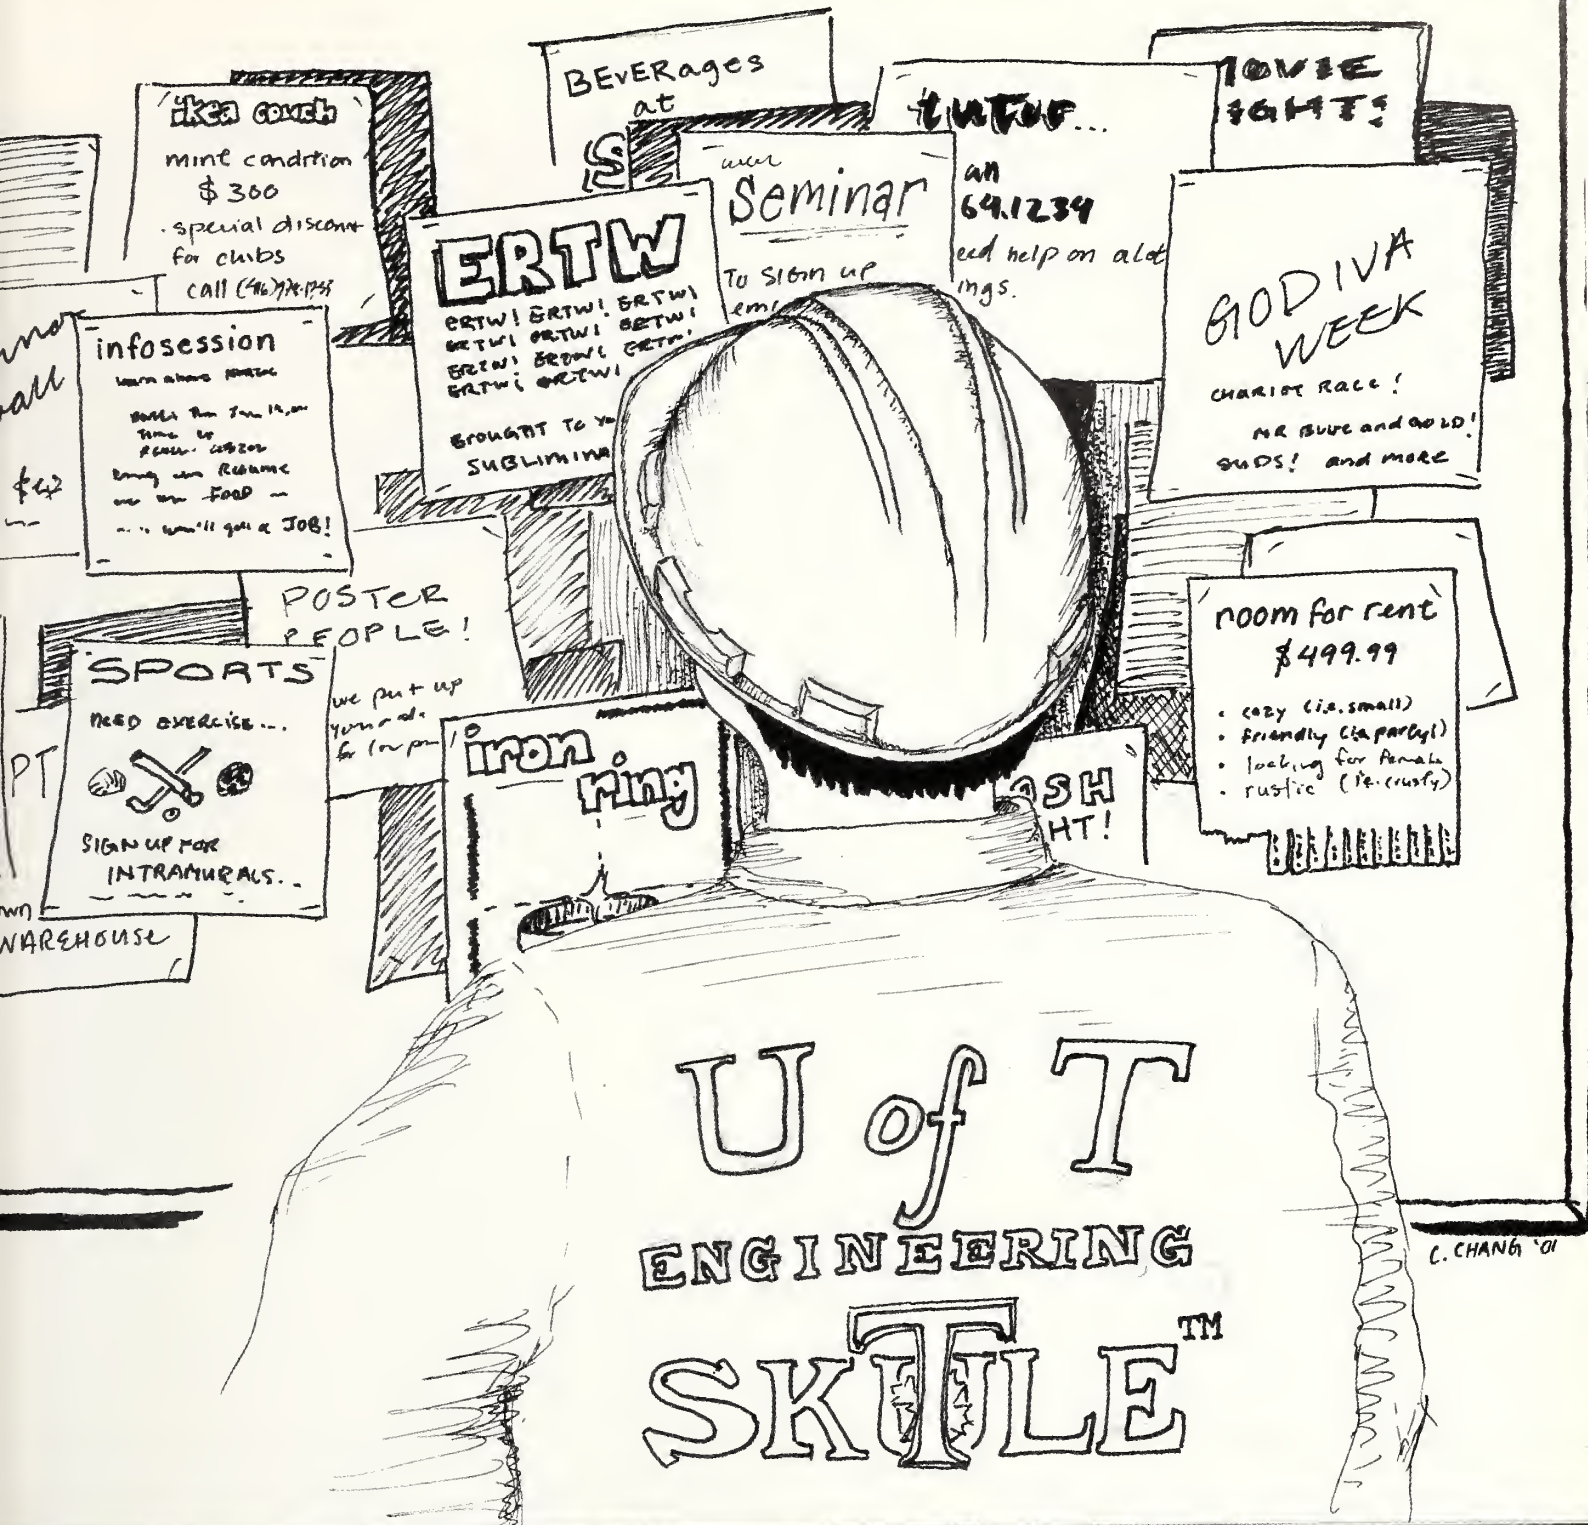 BEVERages
at
S
MOVIE
IGHT!
ikea couch
mint condition
$300
special discount
for chibs
tutor...
an
64.1234
eed help on alot
ings.
Seminar
To sign up
ERTW
ERTW! ERTW! ERTW!
ERTW! ERTW! ERTW!
ERTW! ERTW! ERTW!
ERTW! ERTW!
BROUGHT TO YO
SUBLIMINA
GODIVA
WEEK
CHARIOT RACE!
MR BLUE and GOLD!
SUDS! and more
all
infosession
Resume
FOOD
a JOB!
POSTER
PEOPLE!
we put up
your ad.
SPORTS
NEED EXERCISE...
SIGN UP FOR
INTRAMURALS..
PT
wn
WAREHOUSE
iron
ring
OSH
HT!
room for rent
$499.99
• cozy (i.e. small)
• friendly
• looking for female
• rustic (i.e. crusty)
U of T
ENGINEERING
SKULE™
C. CHANG '01